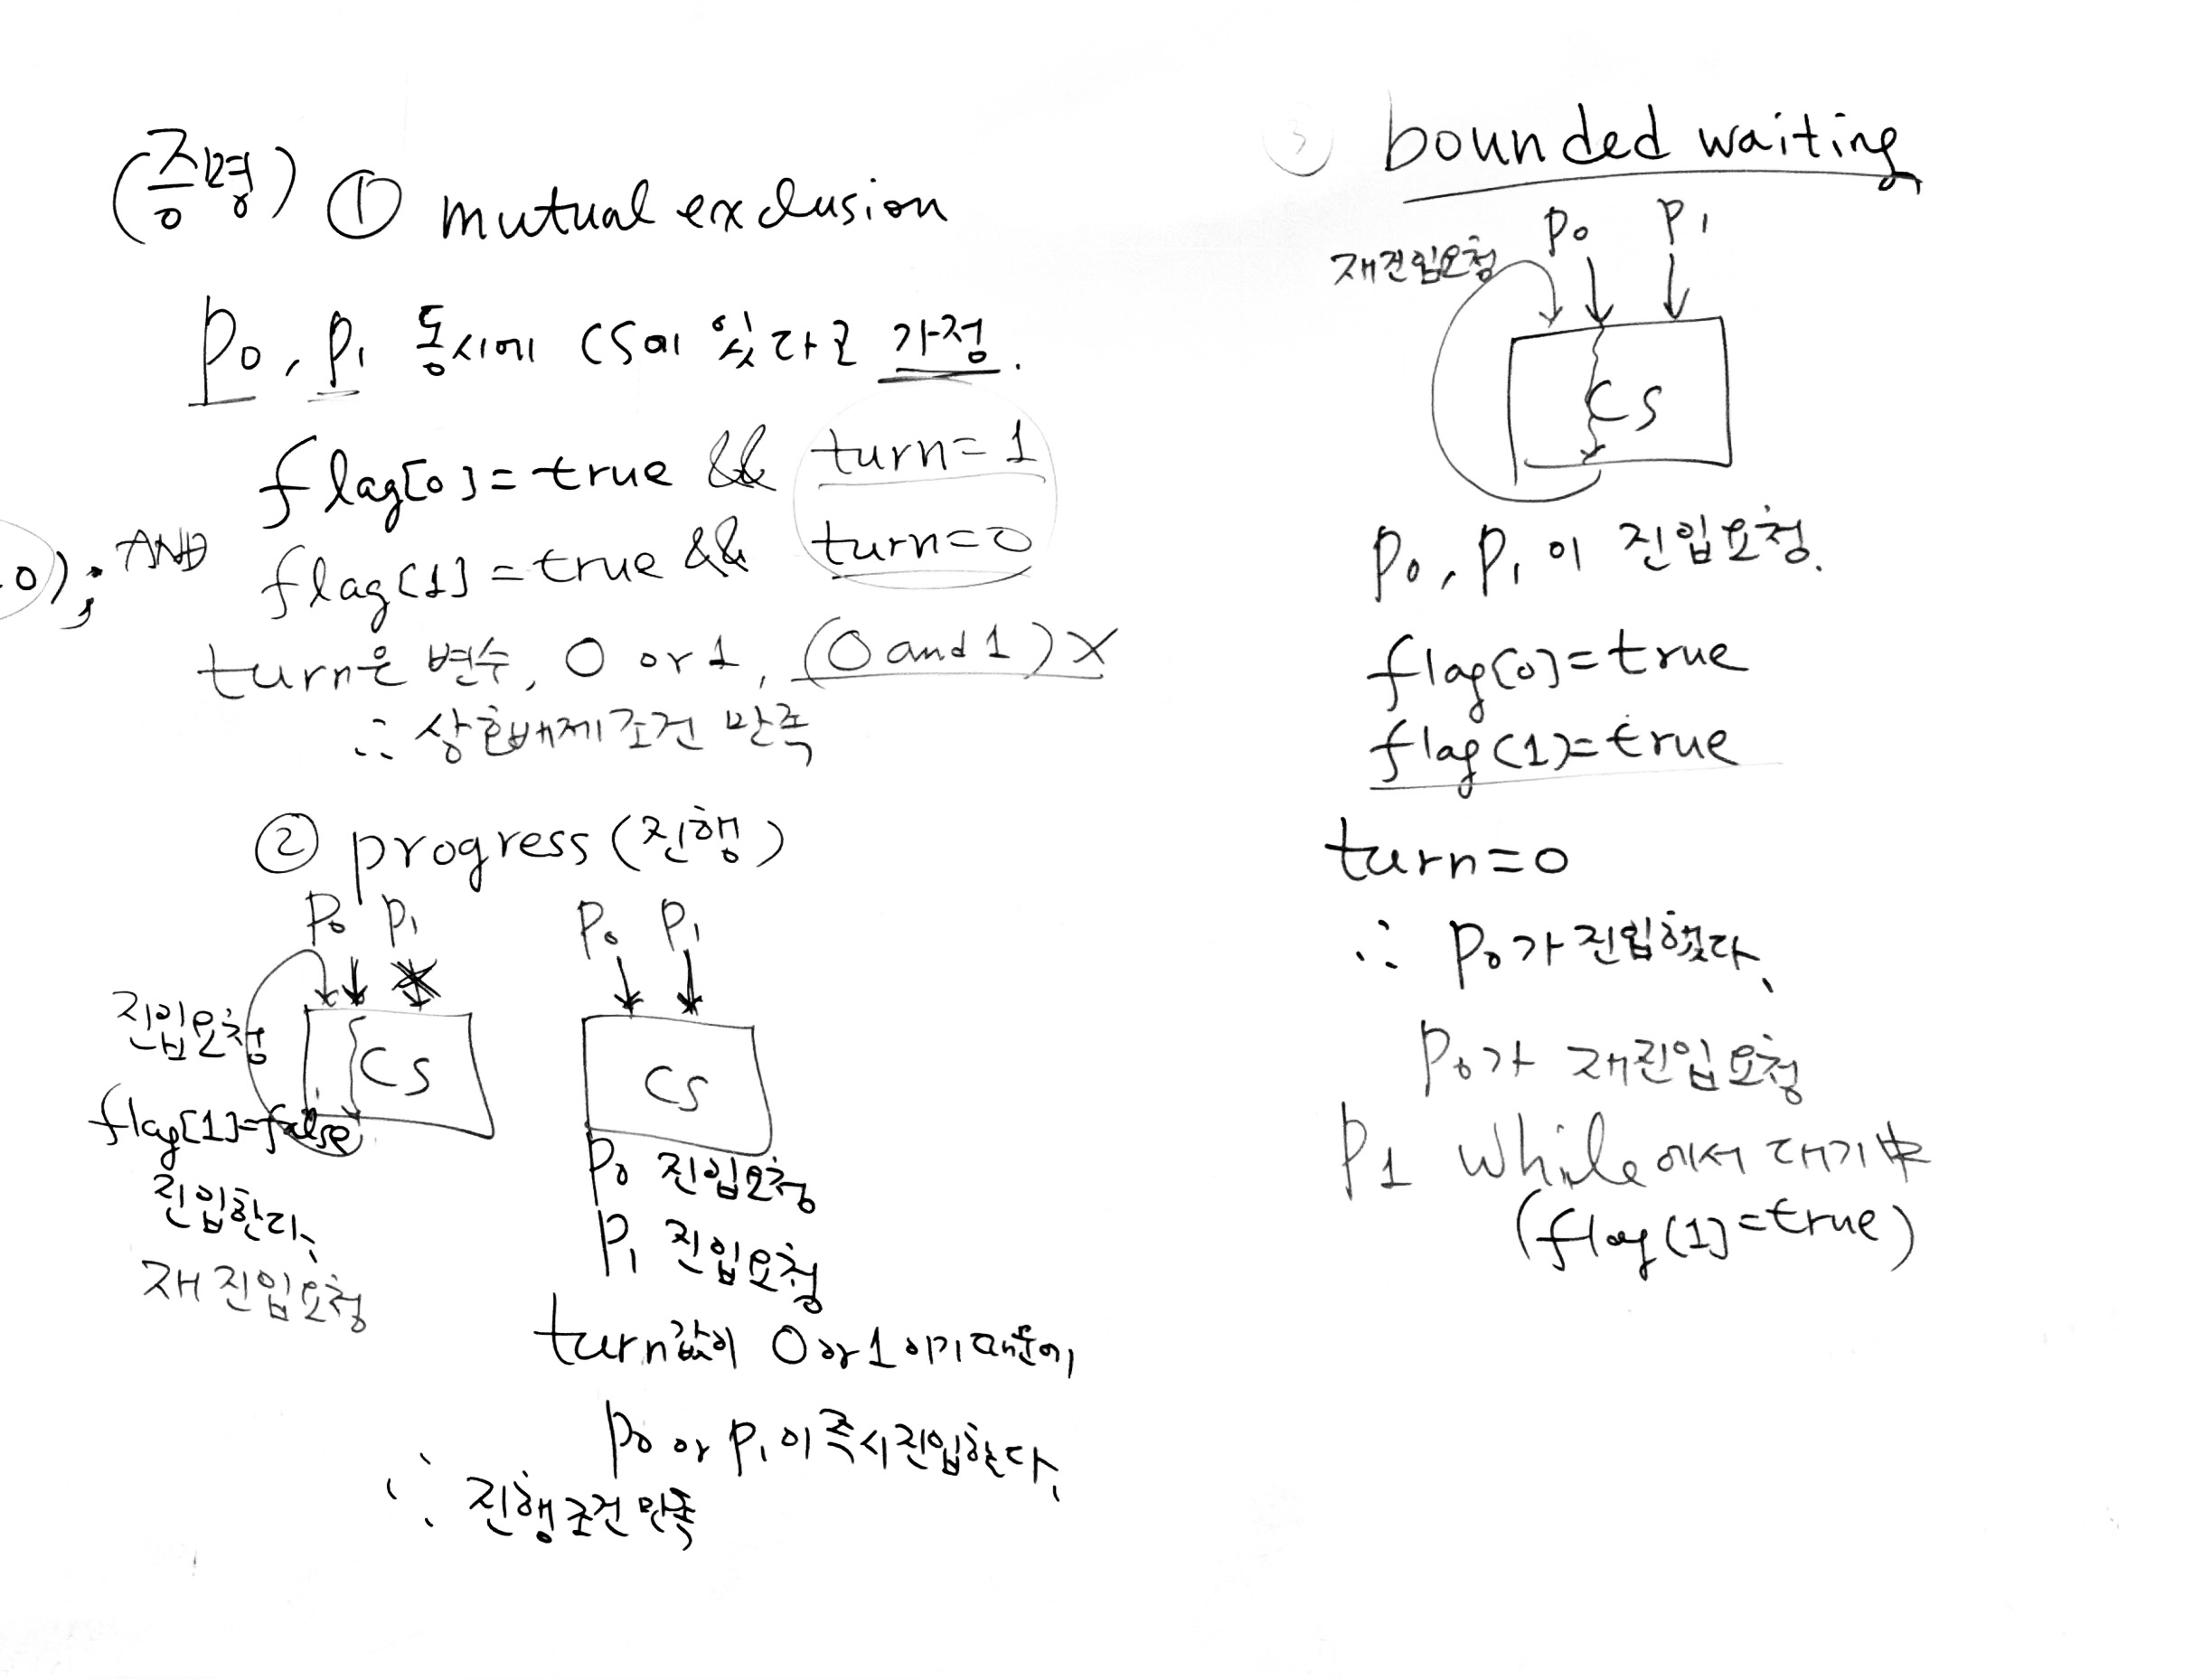 (증명) ① mutual exclusion
P0, P1 동시에 CS에 있다고 가정.
flag[0]=true && turn=1
0); AND
flag[1]=true && turn=0
turn은 변수, 0 or 1, (0 and 1) X
∴ 상호배제조건 만족
② progress (진행)
P0 P1
진입요청
CS
flag[1]=false
진입한다.
재진입요청
P0 P1
CS
P0 진입요청
P1 진입요청
turn값이 0 or 1 이기 때문에,
P0 or P1이 즉시진입한다.
∴ 진행조건만족
③ bounded waiting
P0 P1
재진입요청
CS
P0, P1이 진입요청.
flag[0]=true
flag[1]=true
turn=0
∴ P0가 진입했다.
P0가 재진입요청
P1 while에서 대기中
(flag[1]=true)